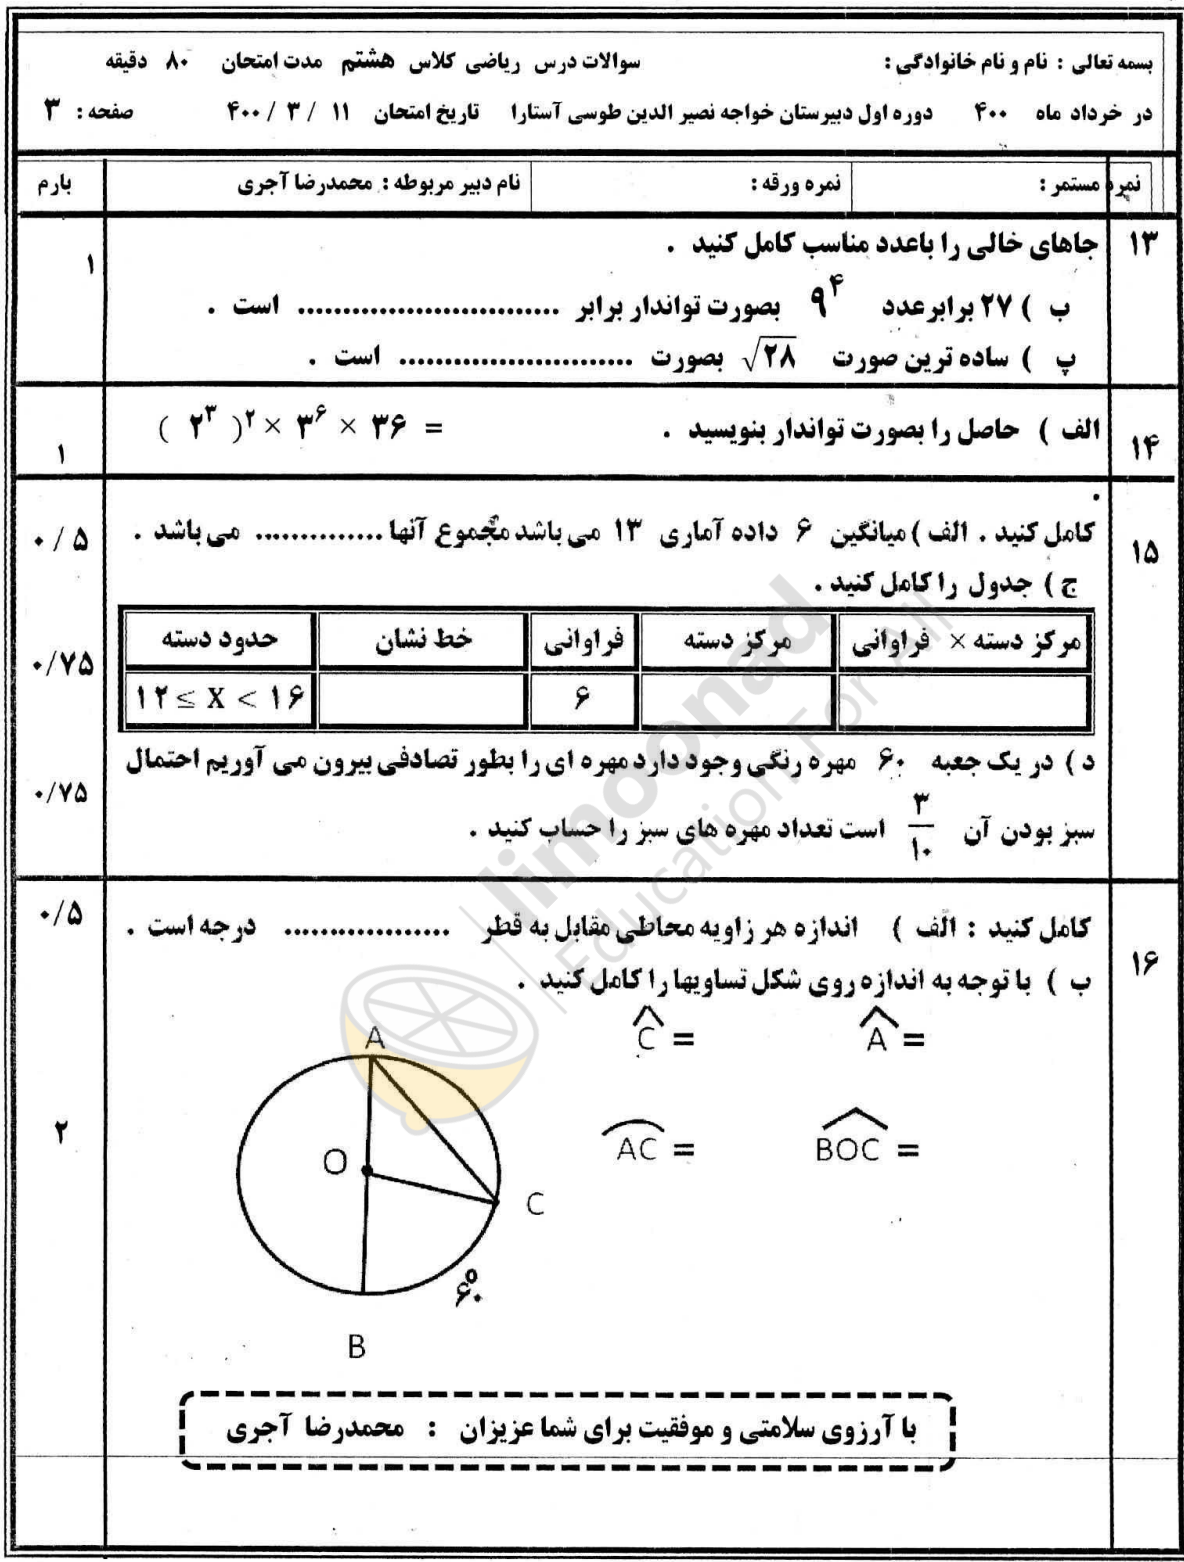 بسمه تعالی : نام و نام خانوادگی : سوالات درس ریاضی کلاس هشتم مدت امتحان ۸۰ دقیقه
در خرداد ماه ۴۰۰ دوره اول دبیرستان خواجه نصیر الدین طوسی آستارا تاریخ امتحان ۱۱ / ۳ / ۴۰۰ صفحه : ۳
نمره مستمر : نمره ورقه : نام دبیر مربوطه : محمدرضا آجری بارم
۱۳ جاهای خالی را باعدد مناسب کامل کنید .
۱
ب ) ۲۷ برابر عدد ۹^۴ بصورت تواندار برابر ............................ است .
پ ) ساده ترین صورت √۲۸ بصورت ......................... است .
۱۴ الف ) حاصل را بصورت تواندار بنویسید . ( ۲^۳ )^۲ × ۳^۶ × ۳۶ =
۱
۱۵ کامل کنید . الف ) میانگین ۶ داده آماری ۱۳ می باشد مجموع آنها .............. می باشد . ۰/۵
ج ) جدول را کامل کنید .
حدود دسته خط نشان فراوانی مرکز دسته مرکز دسته × فراوانی
۰/۷۵
۱۲ ≤ X < ۱۶ ۶
د ) در یک جعبه ۶۰ مهره رنگی وجود دارد مهره ای را بطور تصادفی بیرون می آوریم احتمال
۰/۷۵
سبز بودن آن ۳/۱۰ است تعداد مهره های سبز را حساب کنید .
۱۶ کامل کنید : الف ) اندازه هر زاویه محاطی مقابل به قطر .................. درجه است . ۰/۵
ب ) با توجه به اندازه روی شکل تساویها را کامل کنید .
Ĉ = Â =
A
AC = BOC =
۲
O
C
۶۰°
B
با آرزوی سلامتی و موفقیت برای شما عزیزان : محمدرضا آجری
limoonad
Education For All